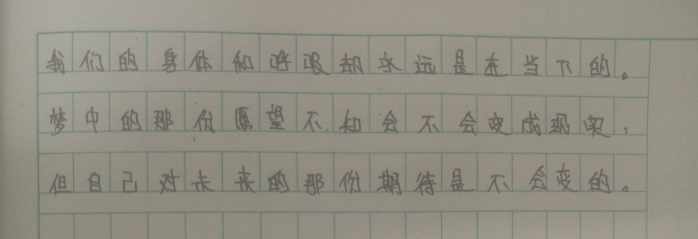 我们的身体和呼吸却永远是在当下的。
梦中的那份愿望不知会不会变成现实,
但自己对未来的那份期待是不会变的。